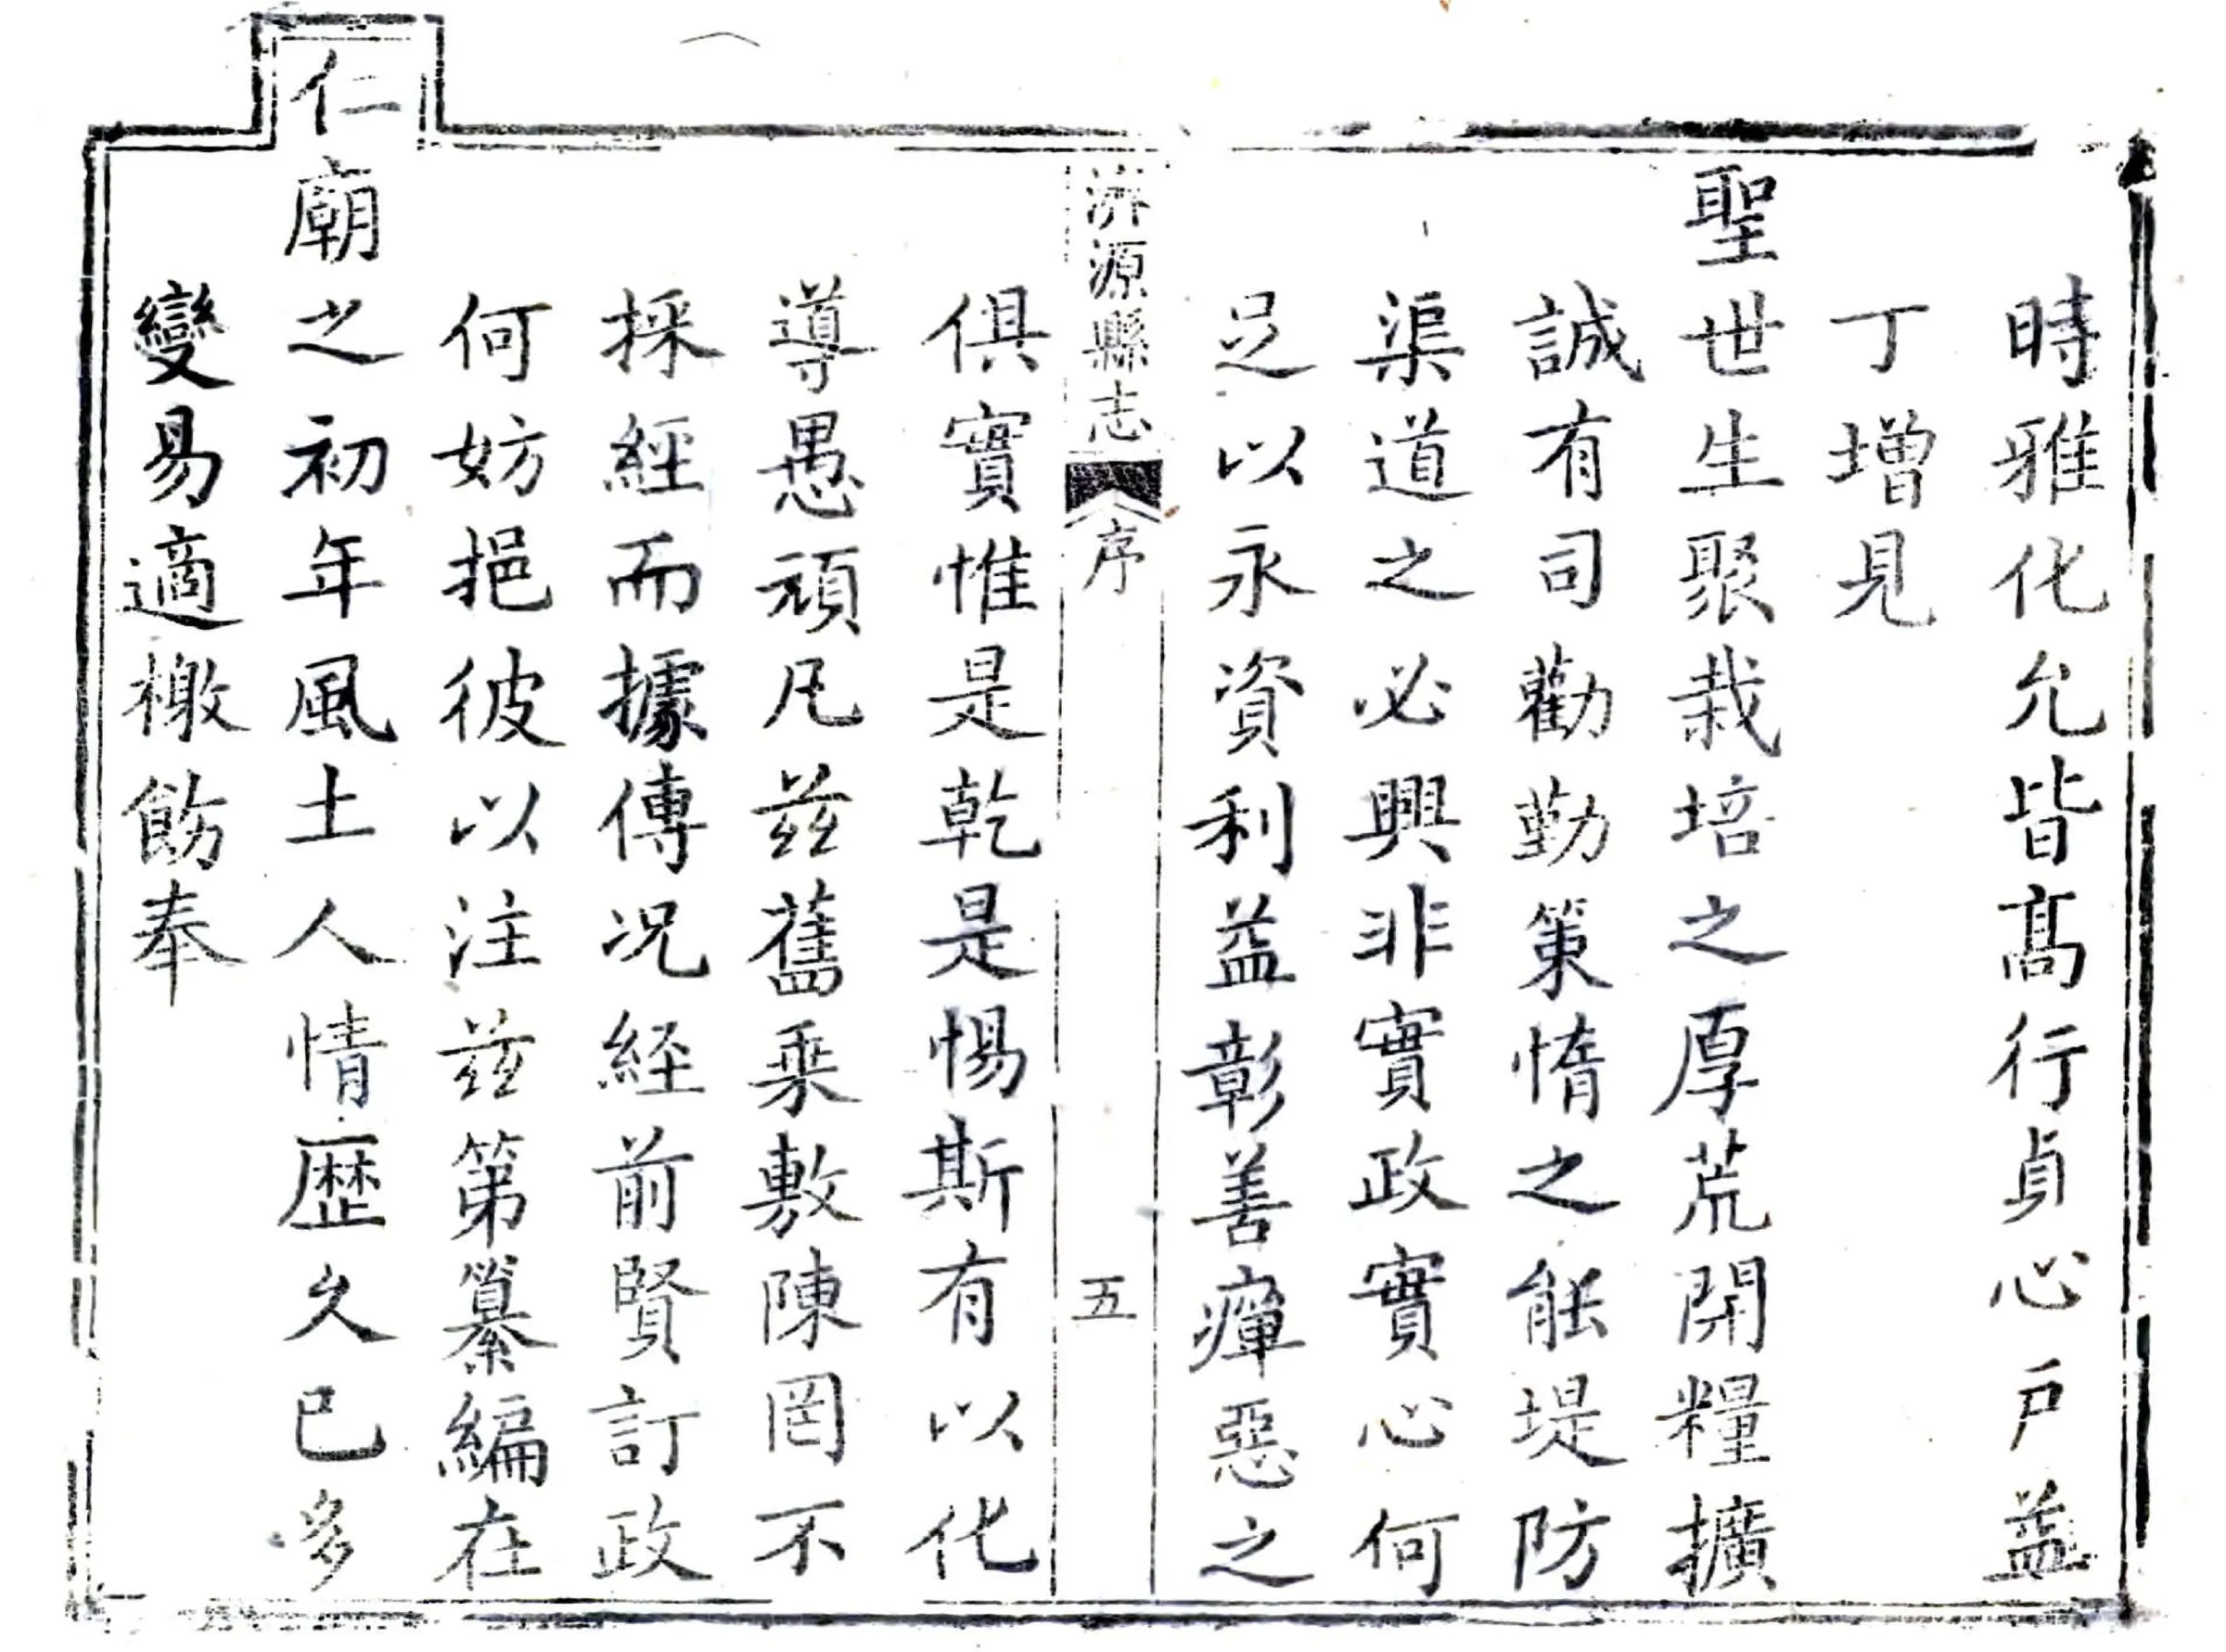 時雅化允皆髙行貞心戸益
丁增見
聖世生聚栽培之厚荒開糧擴
誠有司勸勤策惰之能堤防
渠道之必興非實政實心何
足以永資利益彰善癉惡之
濟源縣志
序
五
俱實惟是乾是惕斯有以化
導愚頑凡兹舊乘敷陳罔不
採經而據傳况經前賢訂政
何妨挹彼以注兹第纂編在
仁廟之初年風土人情歷久已多
變易適檄飭奉